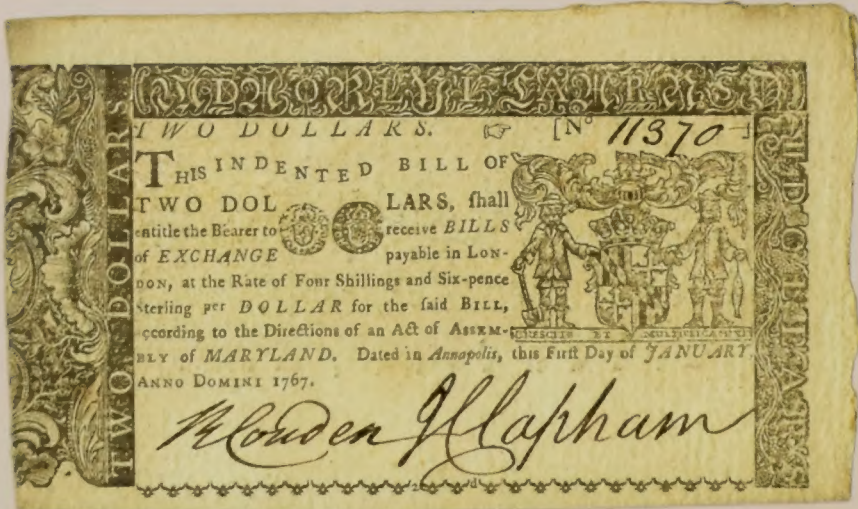 TWO DOLLARS. ☞ [N° 11370]
THIS INDENTED BILL OF
TWO DOL LARS, ſhall
entitle the Bearer to receive BILLS
of EXCHANGE payable in LON-
DON, at the Rate of Four Shillings and Six-pence
Sterling per DOLLAR for the ſaid BILL,
according to the Directions of an Act of ASSEM-
BLY of MARYLAND. Dated in Annapolis, this Firſt Day of JANUARY,
ANNO DOMINI 1767.
CRESCITE ET MULTIPLICAMINI
J Clapham
TWO DOLLARS